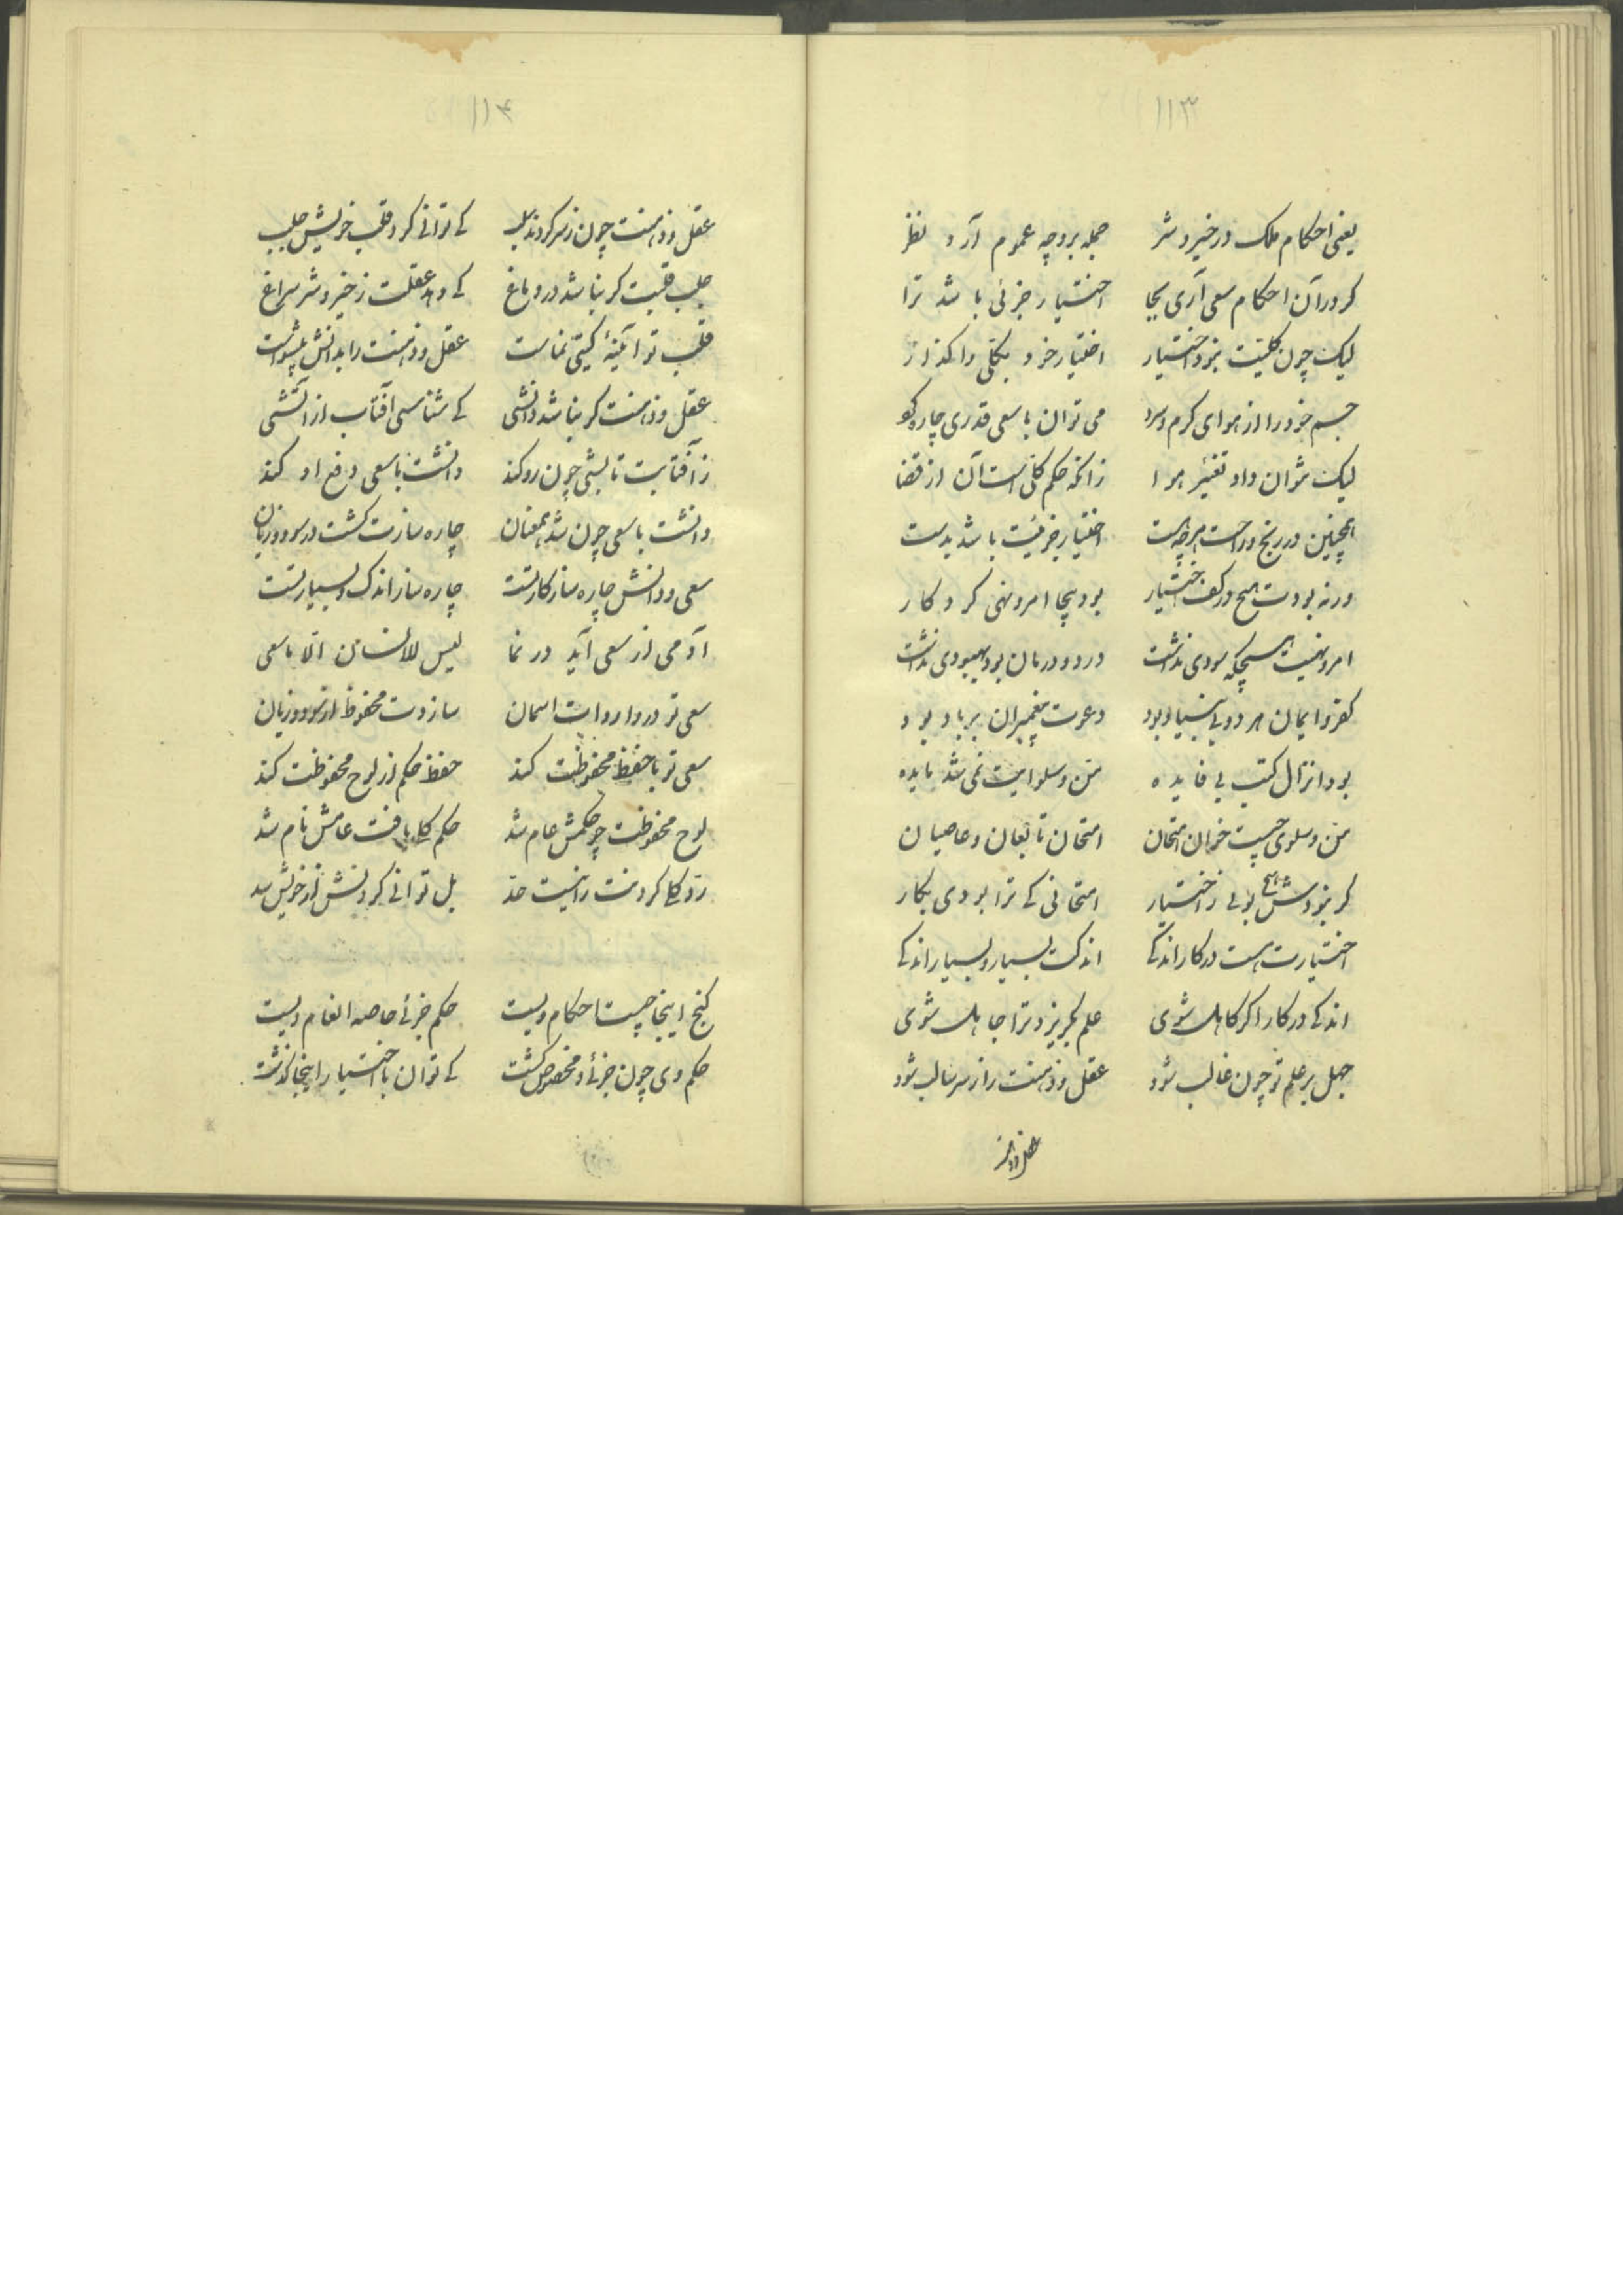 ۱۱۳
یعنی احکام ملک در خیر و شر جمله بر وجه عموم آرد نظر
کر در آن احکام سعی آری بجا اختیار جزئی باشد ترا
لیک چون کلیت نبود اختیار اختیار خود بکلی واکذار
جسم خود را از هوای کرم و سرد می توان با سعی قدری چاره کرد
لیک نتوان داد تغییر هوا زانکه حکم کلی است آن از قضا
همچنین در رنج و راحت هر چه هست اختیار جزئیت باشد بدست
ورنه بودت هیچ در کف اختیار بود بیجا امر و نهی کردکار
امر و نهیت هیچیکه سودی نداشت درد و درمان بود بهبودی نداشت
کفر و ایمان هر دو بی بنیاد بود دعوت پیغمبران بر باد بود
بود انزال کتب بی فایده من و سلوایت نمی شد مایده
من و سلوی چیست خوان امتحان امتحان تابعان و عاصیان
کر نبودش هیچ بوئی ز اختیار امتحانی کے ترا بودی بکار
اختیارت هست در کار اندکے اندکت بسیار و بسیار اندکے
اندکے در کار اکر کاهل شوی علم بکریزد ترا جاهل شوی
جهل بر علم تو چون غالب شود عقل و ذهنت را ز سر سالب شود
عقل و ذهنت
۱۱۴
عقل و ذهنت چون ز سر کردند سلب کے توانے کرد قلب خویش جلب
جلب قلبت کر نباشد در دماغ کے دهد عقلت ز خیر و شر سراغ
قلب تو آئینۀ کیتی نماست عقل و ذهنت را بدانش پیشواست
عقل و ذهنت کر نباشد دانشی کے شناسی آفتاب از آتشی
ز آفتابت تابشی چون رو کند دانشت با سعی دفع او کند
دانشت با سعی چون شد همعنان چاره سازت کشت در سود و زیان
سعی و دانش چاره ساز کار تست چاره ساز اندک و بسیار تست
آدمی از سعی آید در نما لیس للانسان الا ما سعی
سعی تو در وارداب آسمان سازدت محفوظ از سود و زیان
سعی تو با حفظ محفوظت کند حفظ حکم از لوح محفوظت کند
لوح محفوظت چو حکمش عام شد حکم کلی یافت عامش نام شد
رد کلی کردنت را نیست حد بل توانے کردنش از خویش سد
کنج اینجا چیست احکام ویست حکم جزئے خاصه انعام ویست
حکم وی چون جزئے و مخصوص کشت کے توان با اختیار اینجا کذشت